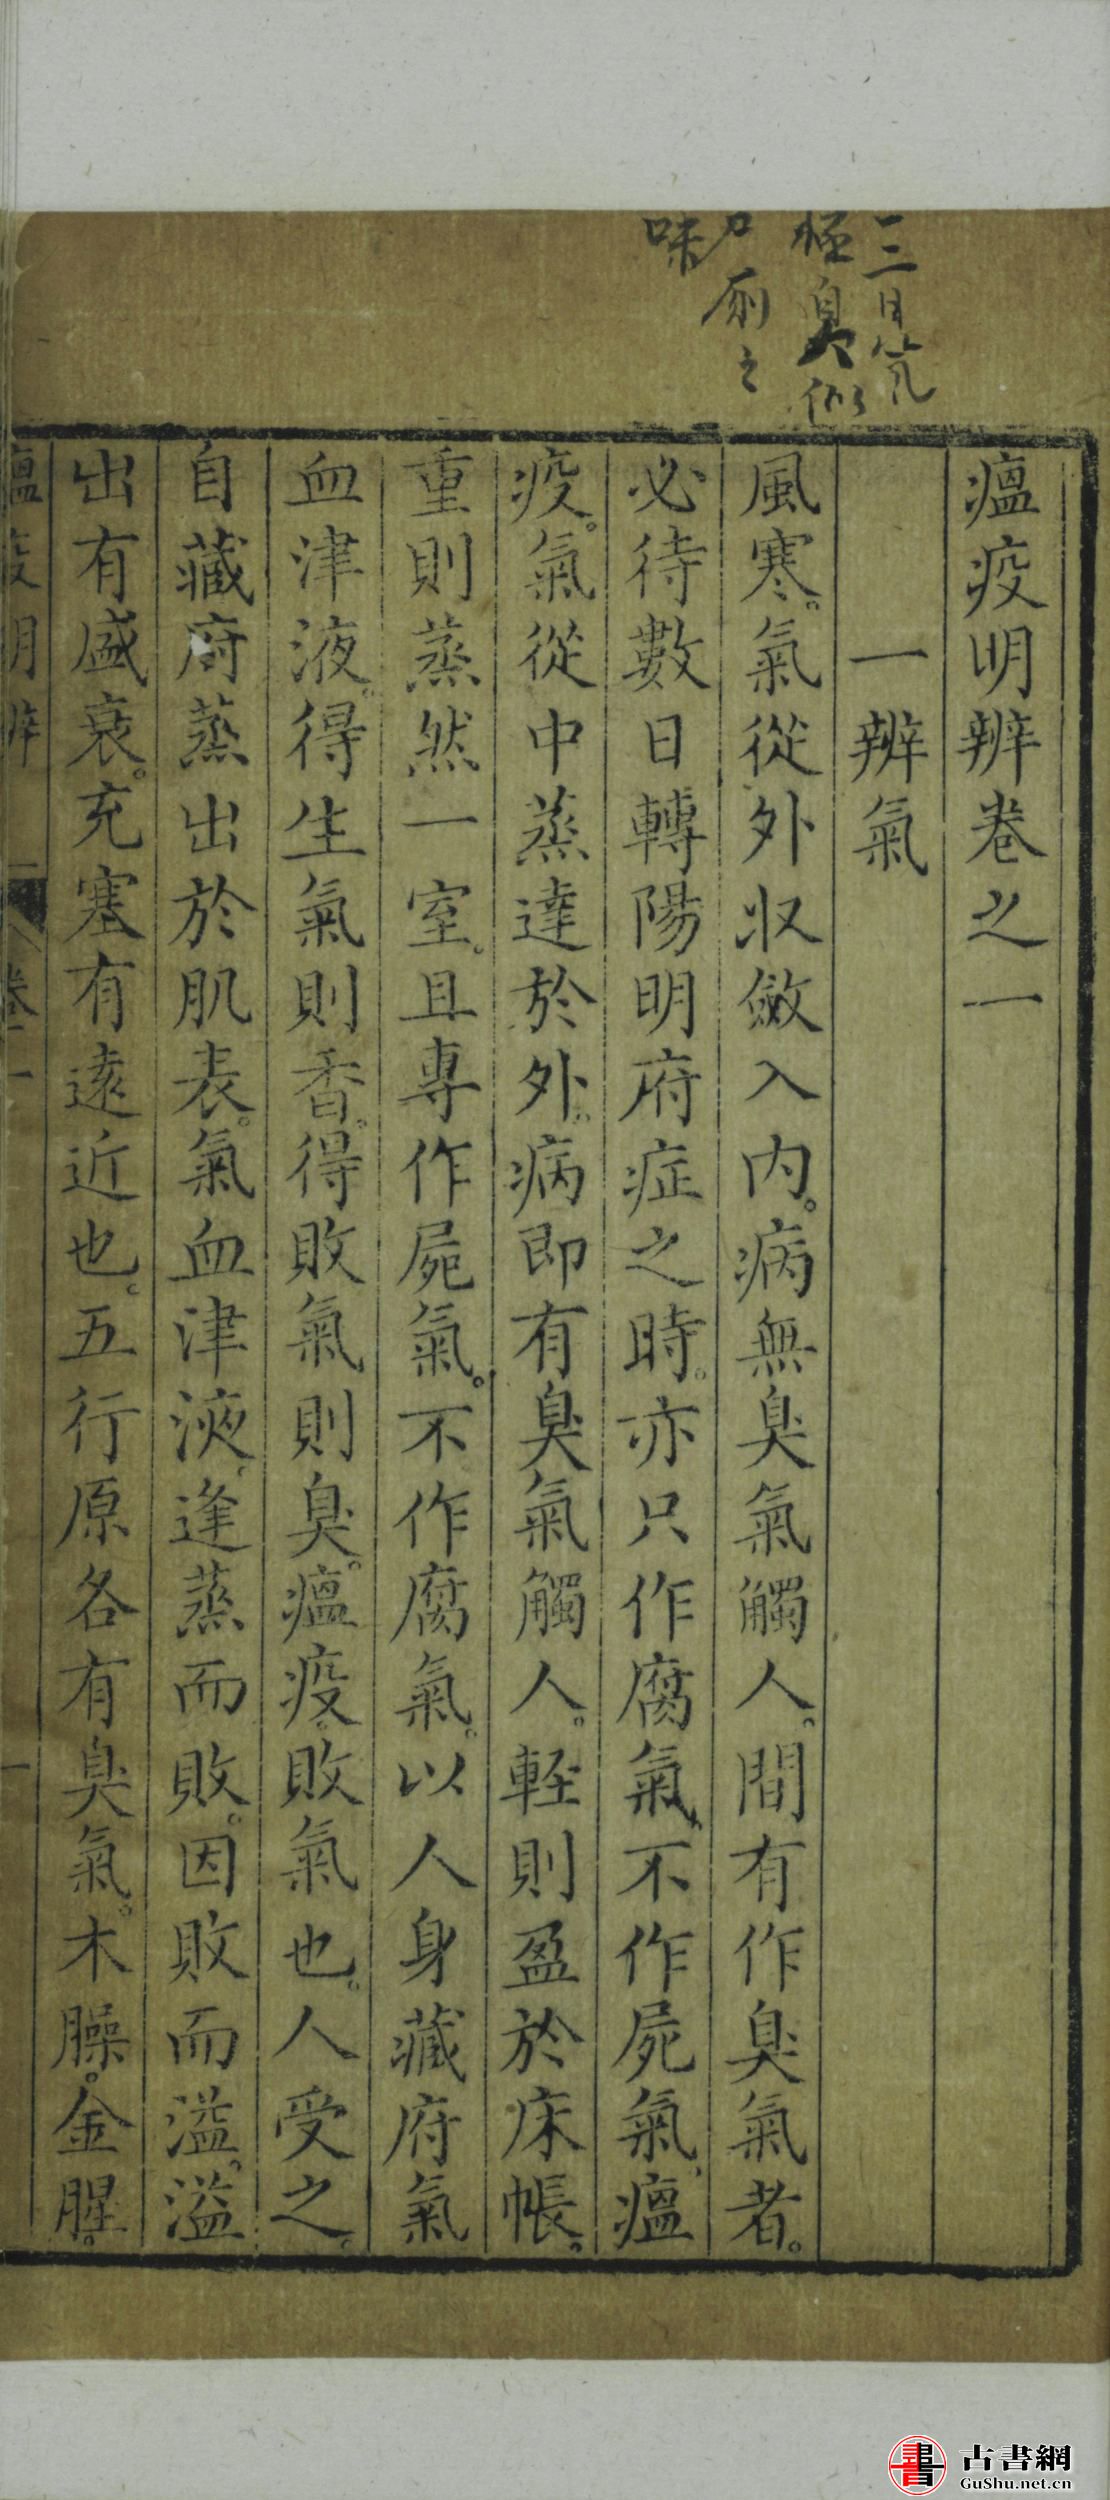 三日氣
極臭似
廁之
味
瘟疫明辨卷之一
一辨氣
風寒。氣從外收斂入內。病無臭氣觸人。間有作臭氣者。
必待數日轉陽明府症之時。亦只作腐氣、不作屍氣、瘟
疫。氣從中蒸達於外。病即有臭氣觸人。輕則盈於床帳。
重則蒸然一室。且專作屍氣。不作腐氣。以人身藏府氣
血津液。得生氣則香。得敗氣則臭。瘟疫。敗氣也。人受之。
自藏府蒸出於肌表。氣血津液、逢蒸而敗。因敗而溢。溢
出有盛衰。充塞有遠近也。五行原各有臭氣。木臊。金腥。
瘟疫明辨 卷一 一
古書網
GuShu.net.cn